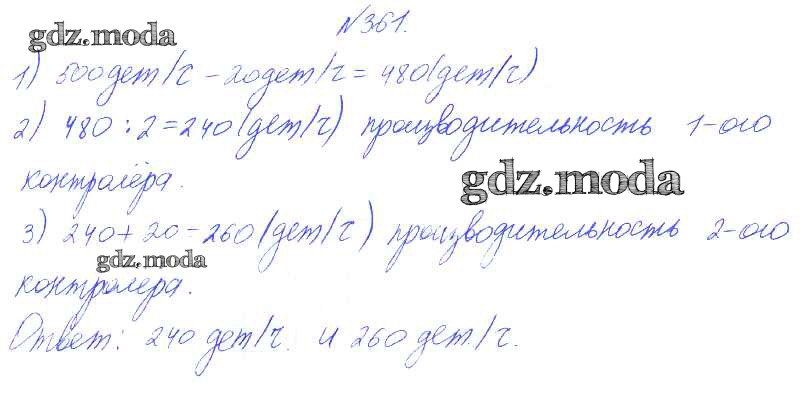 №361.
gdz.moda
1) 500 дет/ч - 20 дет/ч = 480 (дет/ч)
2) 480 : 2 = 240 (дет/ч) производительность 1-ого
контролёра.
gdz.moda
3) 240 + 20 = 260 (дет/ч) производительность 2-ого
gdz.moda
контролера.
Ответ: 240 дет/ч. и 260 дет./ч.